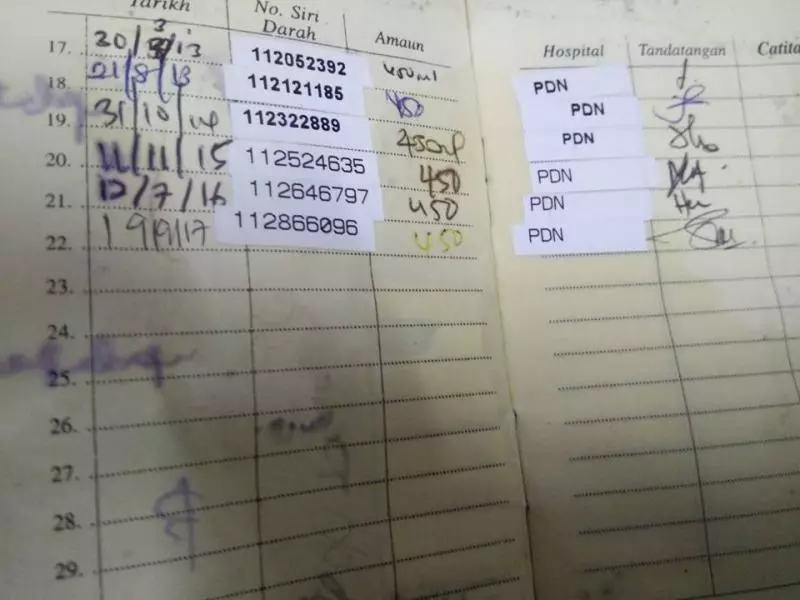 Tarikh No. Siri Darah Amaun Hospital Tandatangan
17. 20/3/13 112052392 450ml PDN
18. 21/8/13 112121185 450 PDN
19. 31/10/14 112322889 450ml PDN
20. 11/11/15 112524635 450 PDN
21. 12/7/16 112646797 450 PDN
22. 19/9/17 112866096 450 PDN
23.
24.
25.
26.
27.
28.
29.